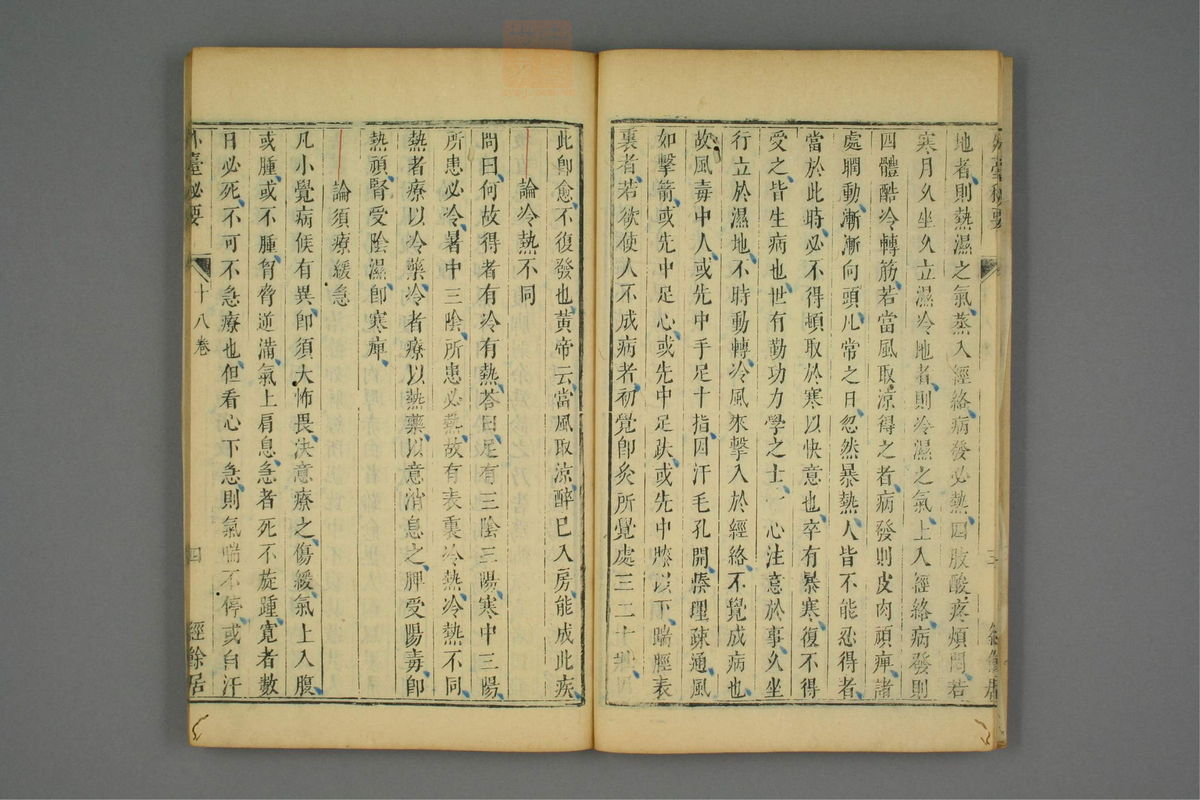 地者則熱濕之氣蒸入經絡病發必熱四肢酸疼煩悶若
寒月久坐久立濕冷地者則冷濕之氣上入經絡病發則
四體酷冷轉筋若當風取涼得之者病發則皮肉頑痺諸
處瞤動漸漸向頭凡常之日忽然暴熱人皆不能忍得者
當於此時必不得頓取於寒以快意也卒有暴寒復不得
受之皆生病也世有勤功力學之士一心注意於事久坐
行立於濕地不時動轉冷風來擊入於經絡不覺成病也
故風毒中人或先中手足十指因汗毛孔開腠理疎通風
如擊箭或先中足心或先中足趺或先中膝以下腨脛表
裏者若欲使人不成病者初覺即灸所覺處三二十壯
此即愈不復發也黃帝云當風取涼醉已入房能成此疾
論冷熱不同
問曰何故得者有冷有熱荅曰足有三陰三陽寒中三陽
所患必冷暑中三陰所患必熱故有表裏冷熱冷熱不同
熱者療以冷藥冷者療以熱藥以意消息之脾受陽毒即
熱頑腎受陰濕即寒痺
論須療緩急
凡小覺病候有異即須大怖畏決意療之傷緩氣上入腹
或腫或不腫胷脅逆滿氣上肩息急者死不旋踵寬者數
日必死不可不急療也但看心下急則氣喘不停或自汗
外臺秘要 十八卷 四 經餘居